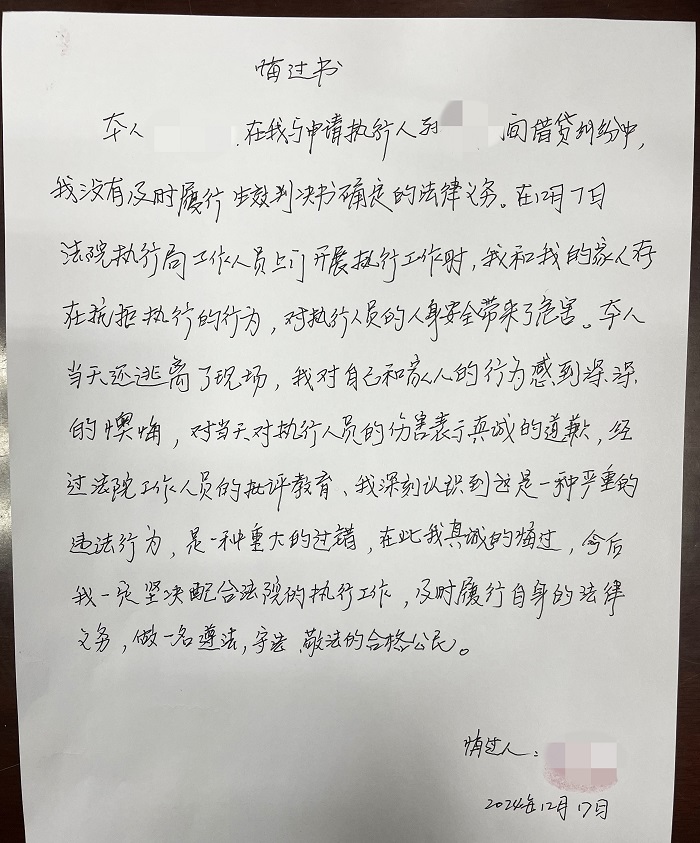 悔过书
本人 .在我与申请执行人 间借贷纠纷中,
我没有及时履行生效判决书确定的法律义务。在12月7日
法院执行局工作人员上门开展执行工作时,我和我的家人存
在抗拒执行的行为,对执行人员的人身安全带来了危害。本人
当天还逃离了现场,我对自己和家人的行为感到深深
的懊悔,对当天对执行人员的伤害表示真诚的道歉,经
过法院工作人员的批评教育、我深刻认识到这是一种严重的
违法行为,是一种重大的过错,在此我真诚的悔过,今后
我一定坚决配合法院的执行工作,及时履行自身的法律
义务,做一名遵法,守法、敬法的合格公民。
悔过人:
2024年12月17日